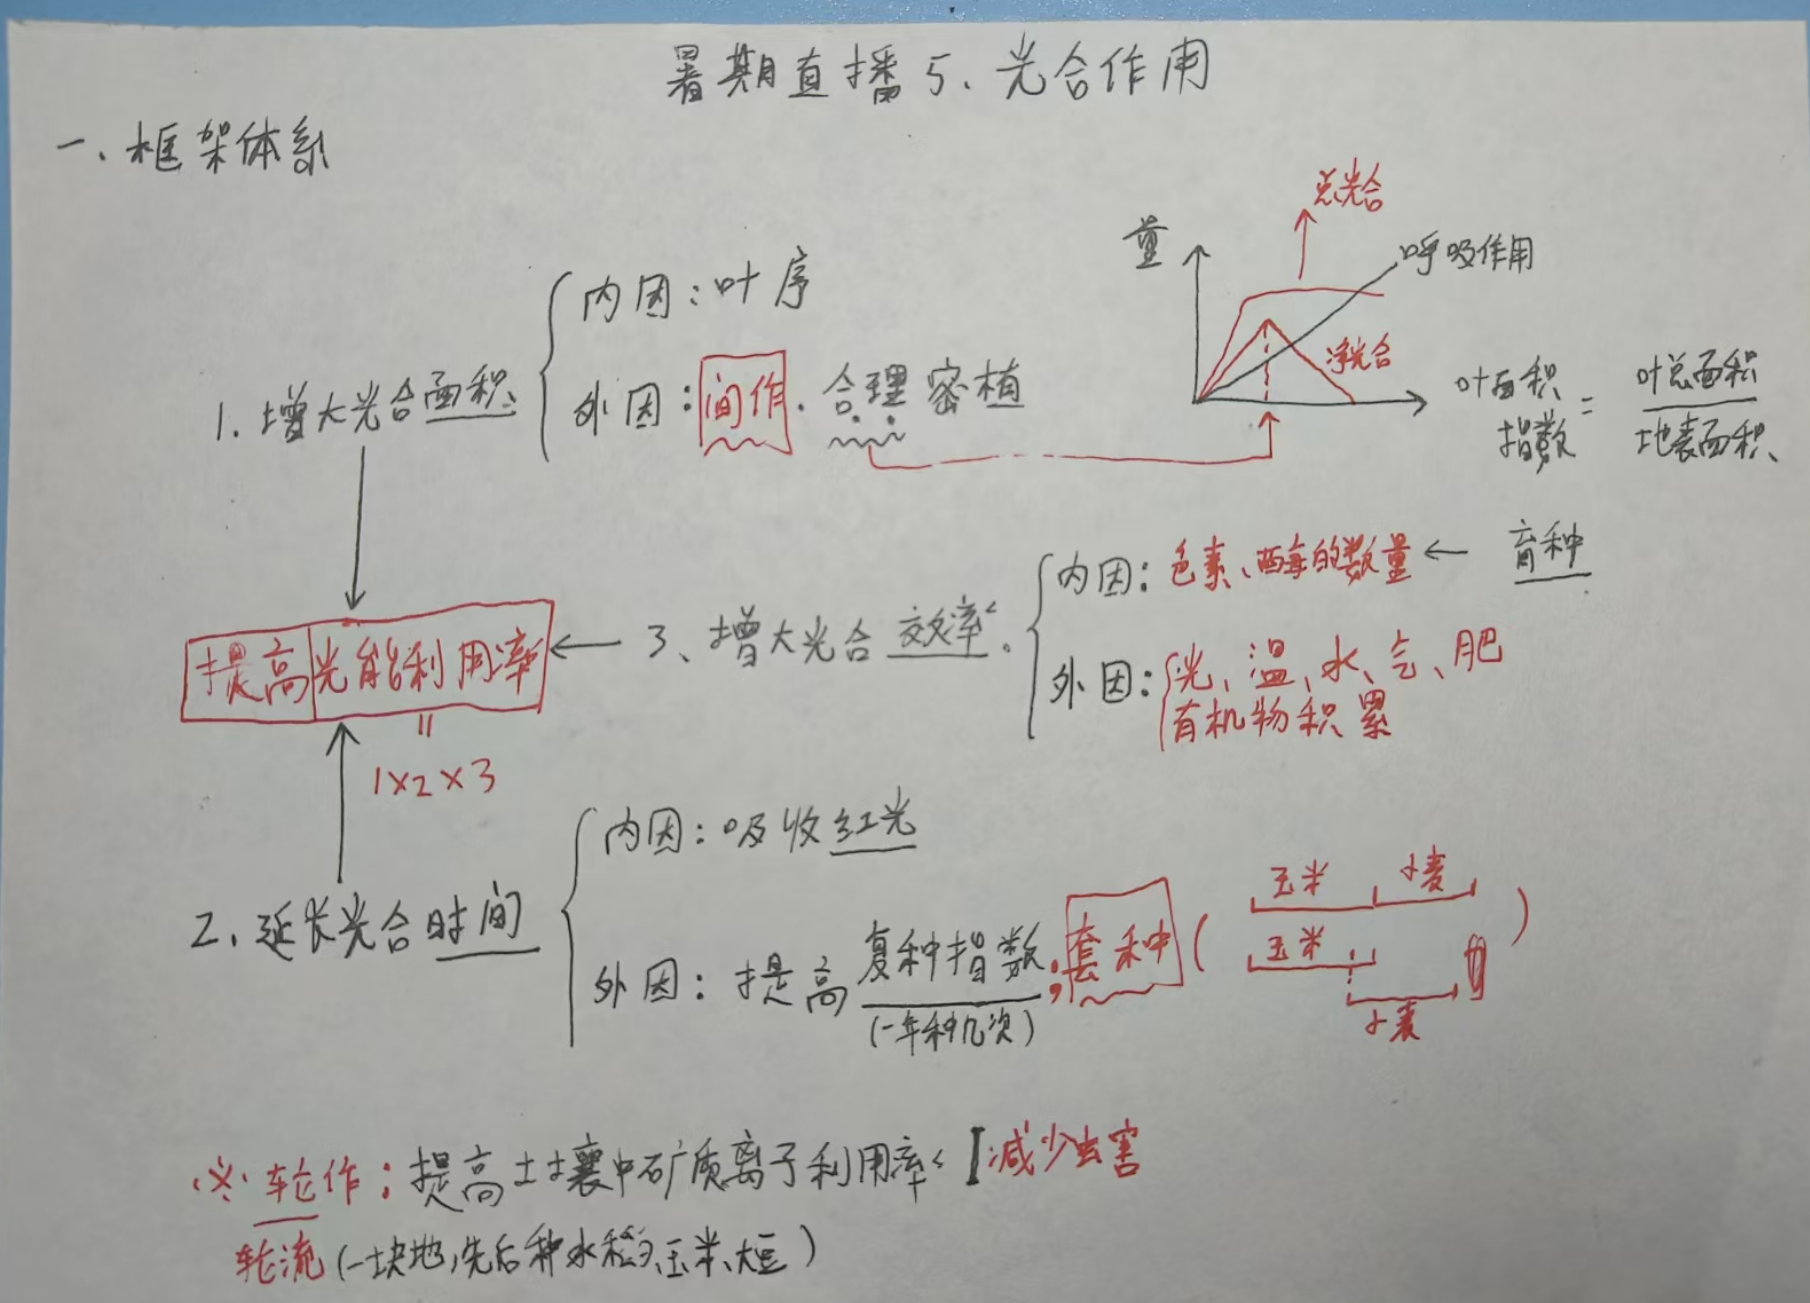 暑期直播5、光合作用
一、框架体系
总光合
量
呼吸作用
净光合
叶面积指数 = 叶总面积/地表面积、
1、增大光合面积、
内因：叶序
外因：间作、合理密植
提高光能利用率
=
1×2×3
3、增大光合效率、
内因：色素、酶的数量 ← 育种
外因：光、温、水、气、肥
有机物积累
2、延长光合时间
内因：吸收红光
外因：提高复种指数；套种（
(一年种几次)
玉米 小麦
玉米
小麦
）
※ 轮作：提高土壤中矿质离子利用率、减少虫害
轮流（一块地，先后种水稻、玉米、大豆）